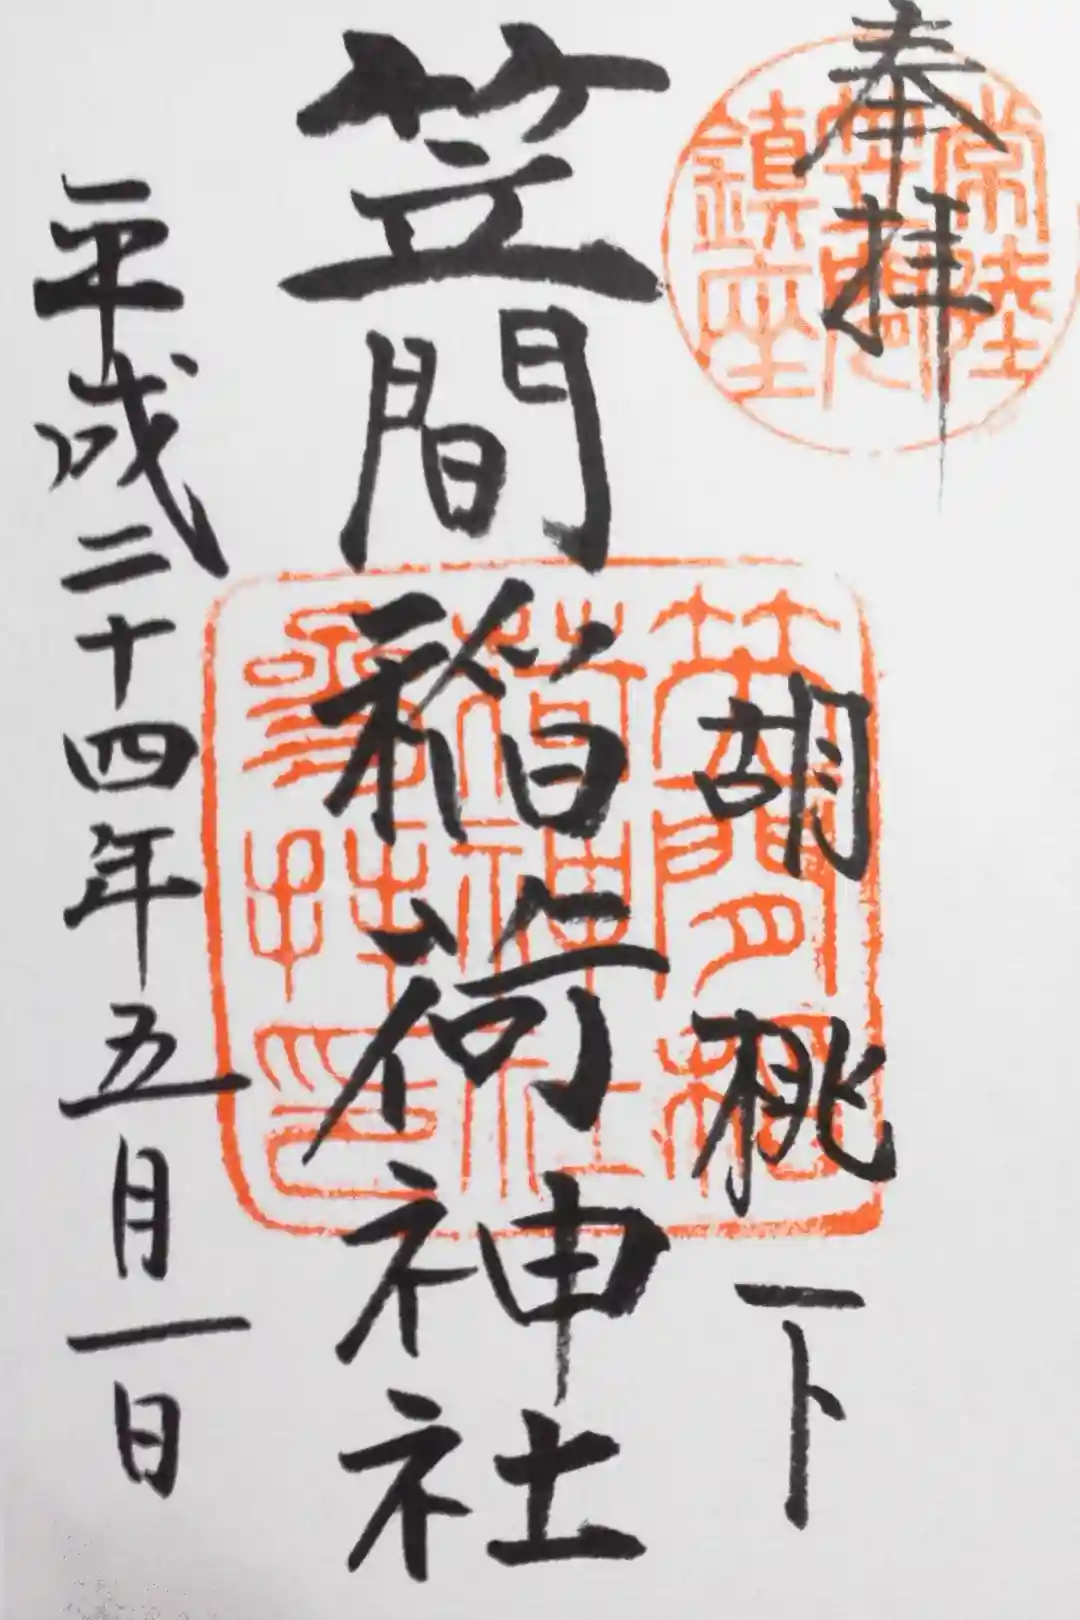 奉拝
常陸
笠間
鎮座
胡桃下
笠間稲荷神社
笠間稲
荷神社
参拝印
平成二十四年五月一日